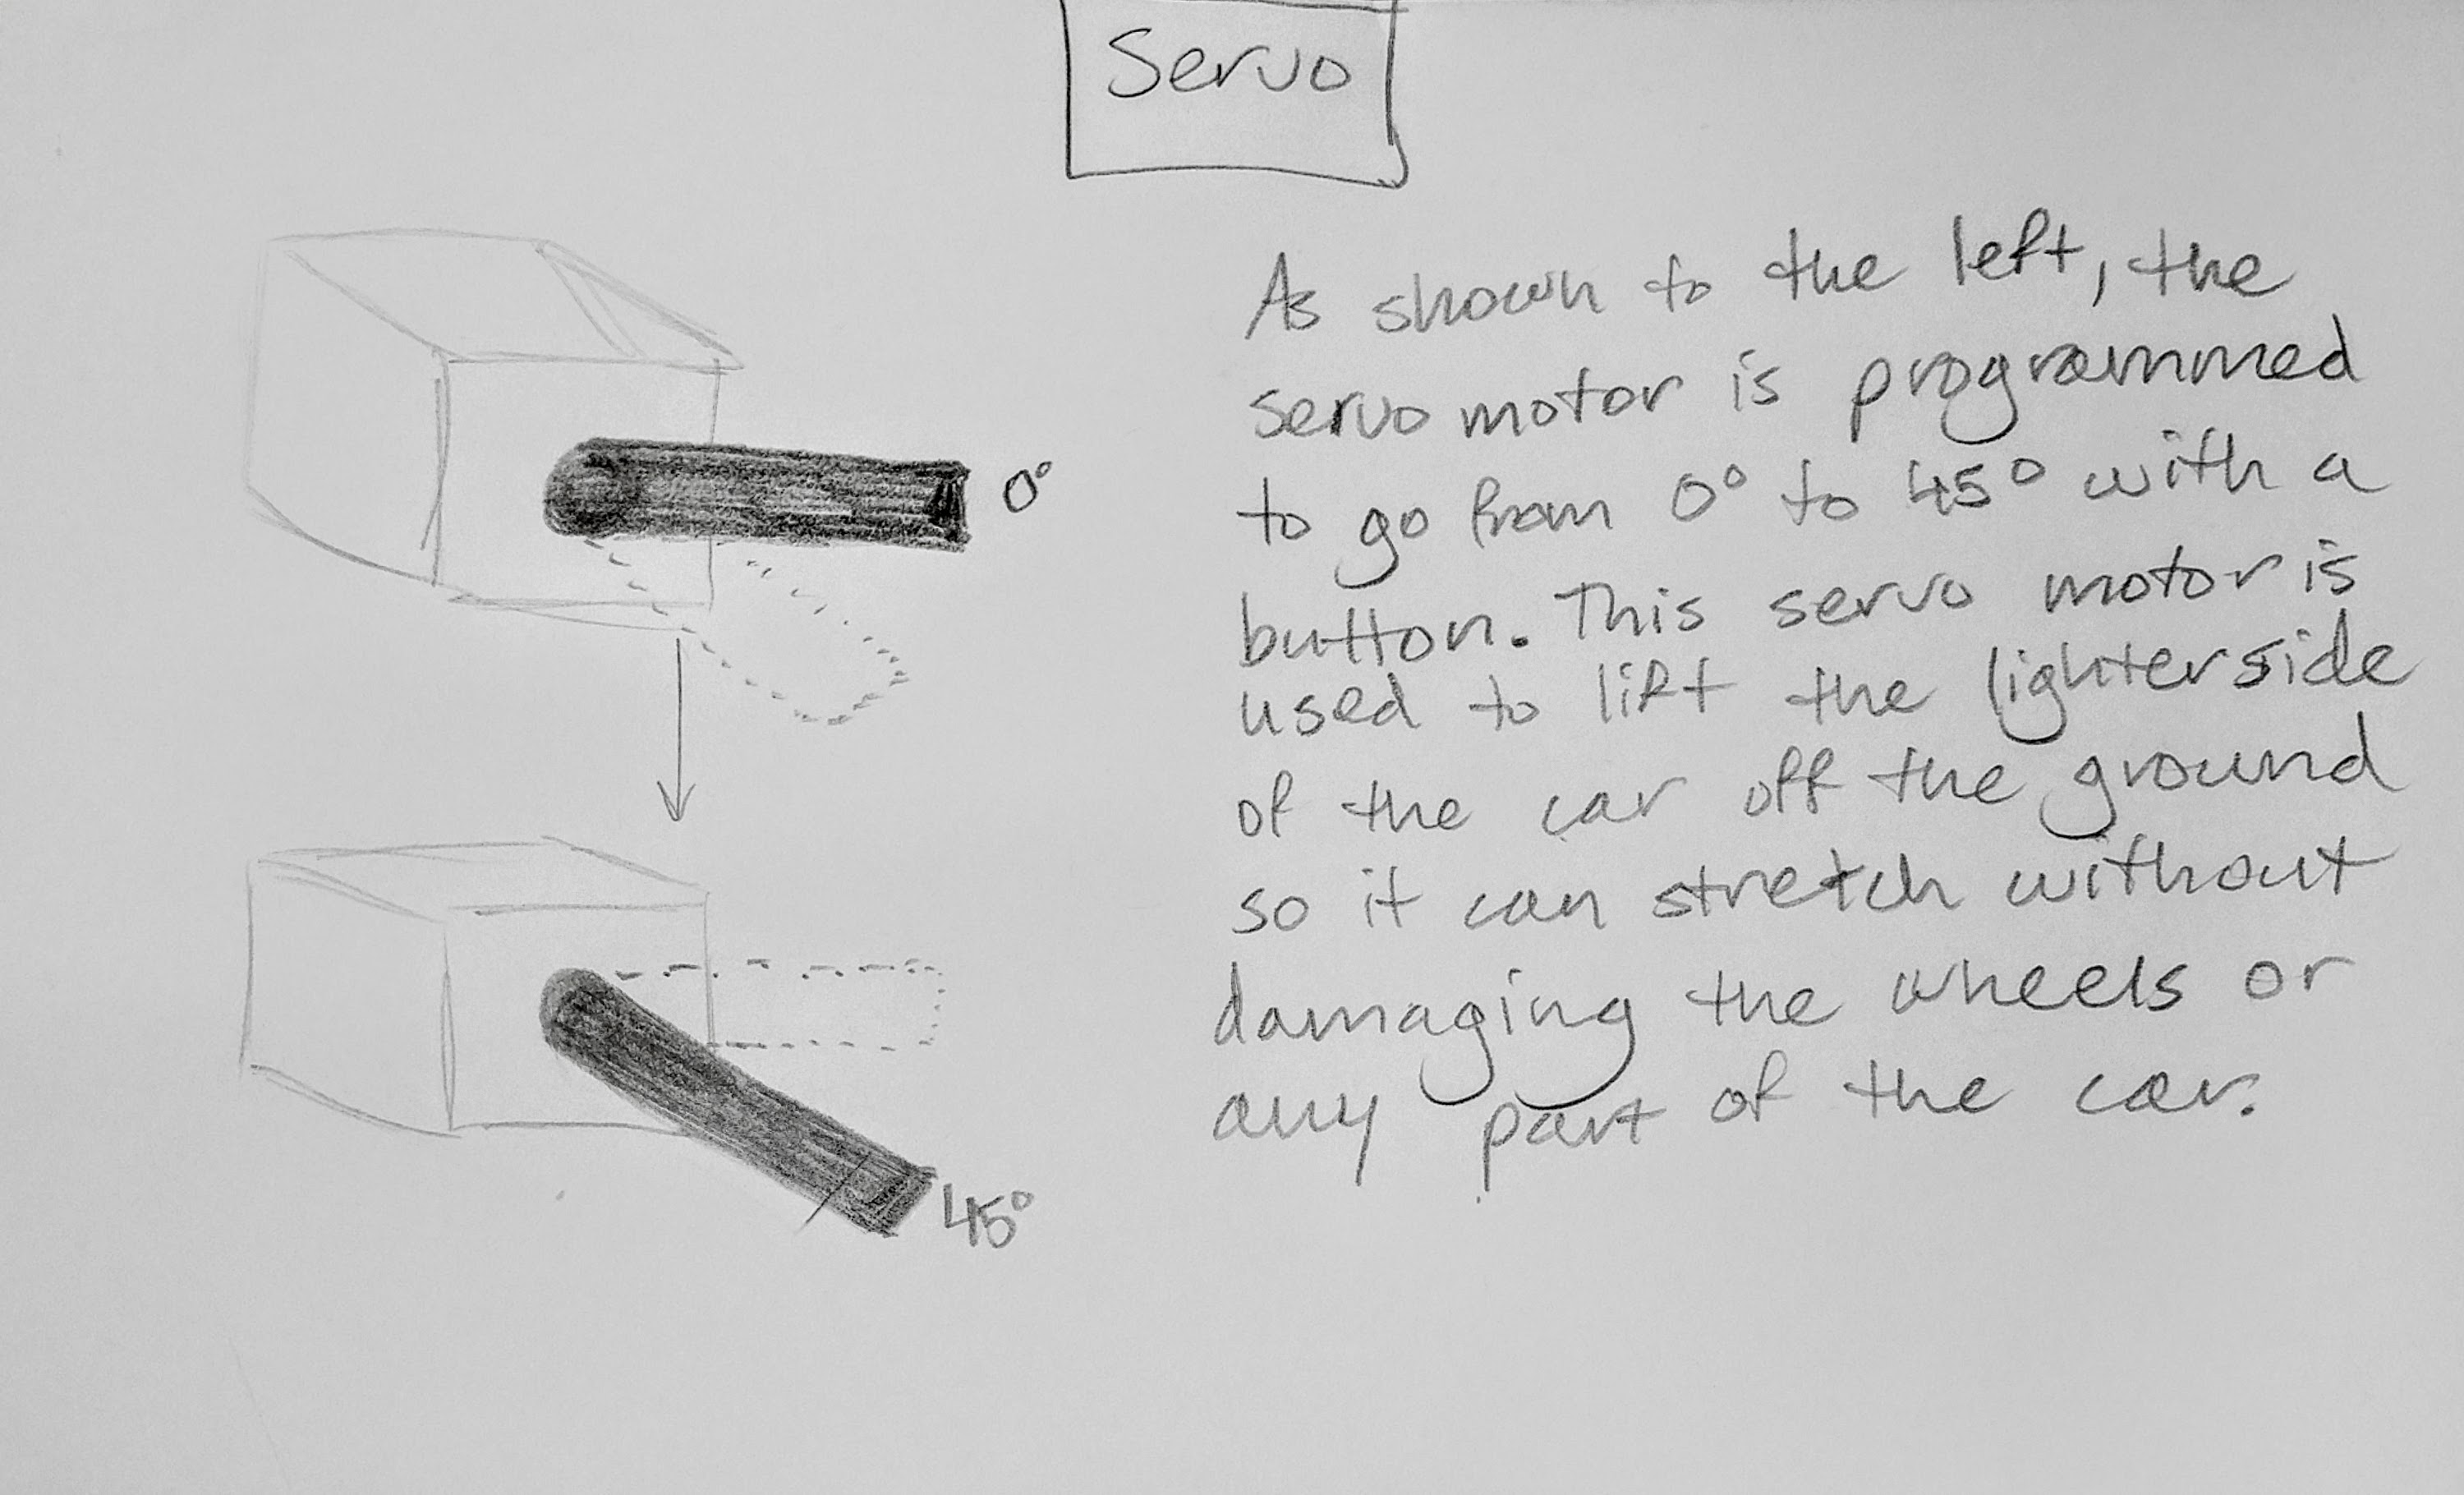 Servo
As shown to the left, the
servo motor is programmed
to go from 0° to 45° with a
button. This servo motor is
used to lift the lighter side
of the car off the ground
so it can stretch without
damaging the wheels or
any part of the car.
0°
45°